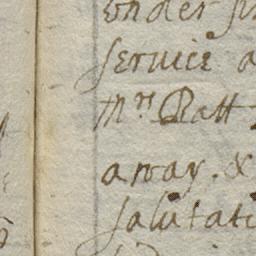 vnder si
seruice a
Mrs Platt
away. &
salutati